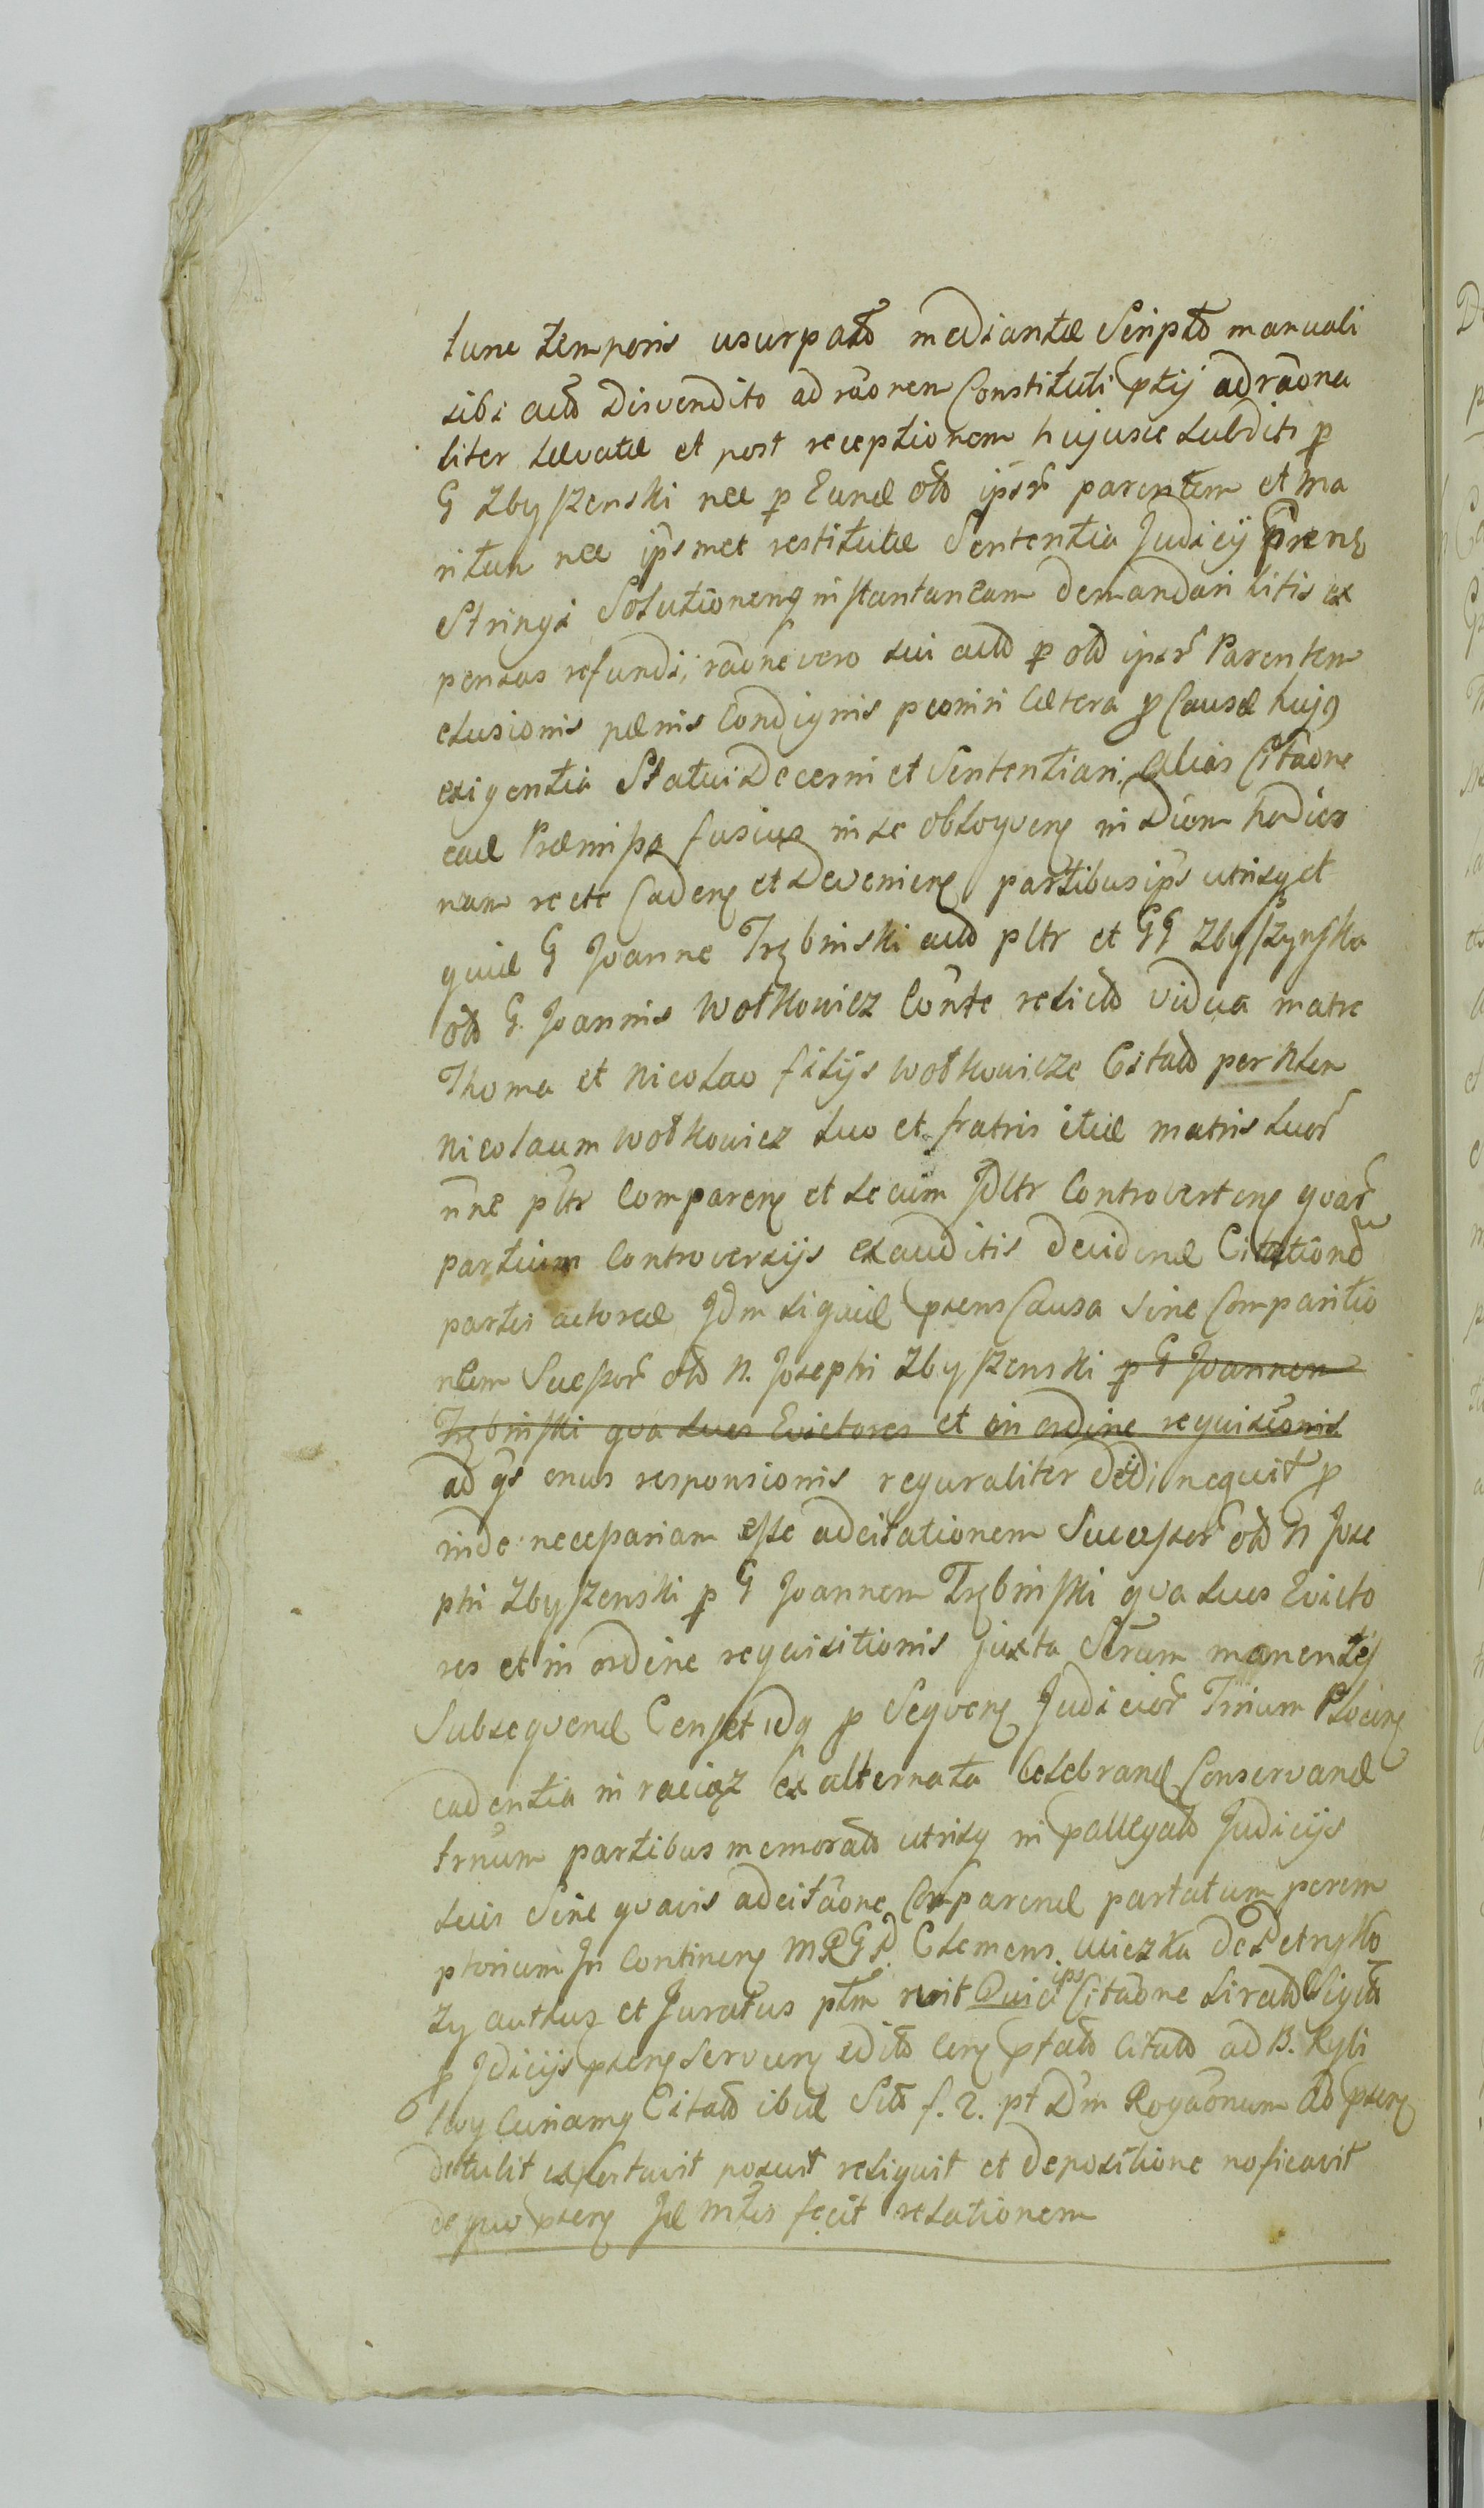 tunc temporis usurpato mediante Scripto manuali
sibi acto disvendito ad raonem Constituti ptij adraona
liter levatæ et post receptionem hujusce subditi p
G Zbyszenski nec p Eund olo ipsr parentem et ma
ritum nec ipsmet restitutæ Sententia Judicij
stringi Solutionemq instantaneam demandari litis ex
pensas refundi, raone vero sui acto p olo ipsr Parentem
elusionis pænis Condignis pœniri Cætera p Causæ hujq
exigentia Statui Decerni et Sententiari. Alias Citaone
ead Præmissa fusius in se obloquen in Diem hodier
nam recte Caden et Devenien partibus ips utrisq et
quid G Joanne Trębinski acto pltr et GG Zbyszynska
olo G. Joannis Wołkowicz Conte relicto vidua matre
Thoma et Nicolao filijs Wołkowicze Citato per Nlem
Nicolaum Wołkowicz suo et fratris itid matris suor
nne pltr Comparen et secum Jdltr Controverten quar
partium Controversijs exauditis devidend Citationd
partis actoreæ Jdm siquid psens Causa sine Comparitio
nem Sucssor olo N. Josephi Zbyszenski p G Joannem
Trębinski qua suos Evictores et in ordine requisionis
ad qs onus responsionis reguraliter nequit p
inde necessariam esse adcitationem Successor olo N Jose
phi Zbyszenski p G Joannem Trębinski qua suos Evicto
res et in ordine requisitionis juxta Strum manentes
Subsequend Censet idq p Sequen Judicior Trium Plocen
cadentia in raciąz Ex alternata Celebrand Conservand
trnum partibus memorato utrisq in pallegato Judicijs
suis Sine quavis adcitaone Comparend partatum perem
ptorium In Continen MRGD. Clemens uliczka de Petryko
zy authus et Juratus ptm rvit Quia ips Citaone
p Jdicijs psens servien edito cen ptato citato ad B. Ryli
Citato ibid f. 2. pt Dm Rogaonum Ao psen
detulit asportavit posuit reliquit et depositione noficavit
de quo psen Jd mtis fecit relationem